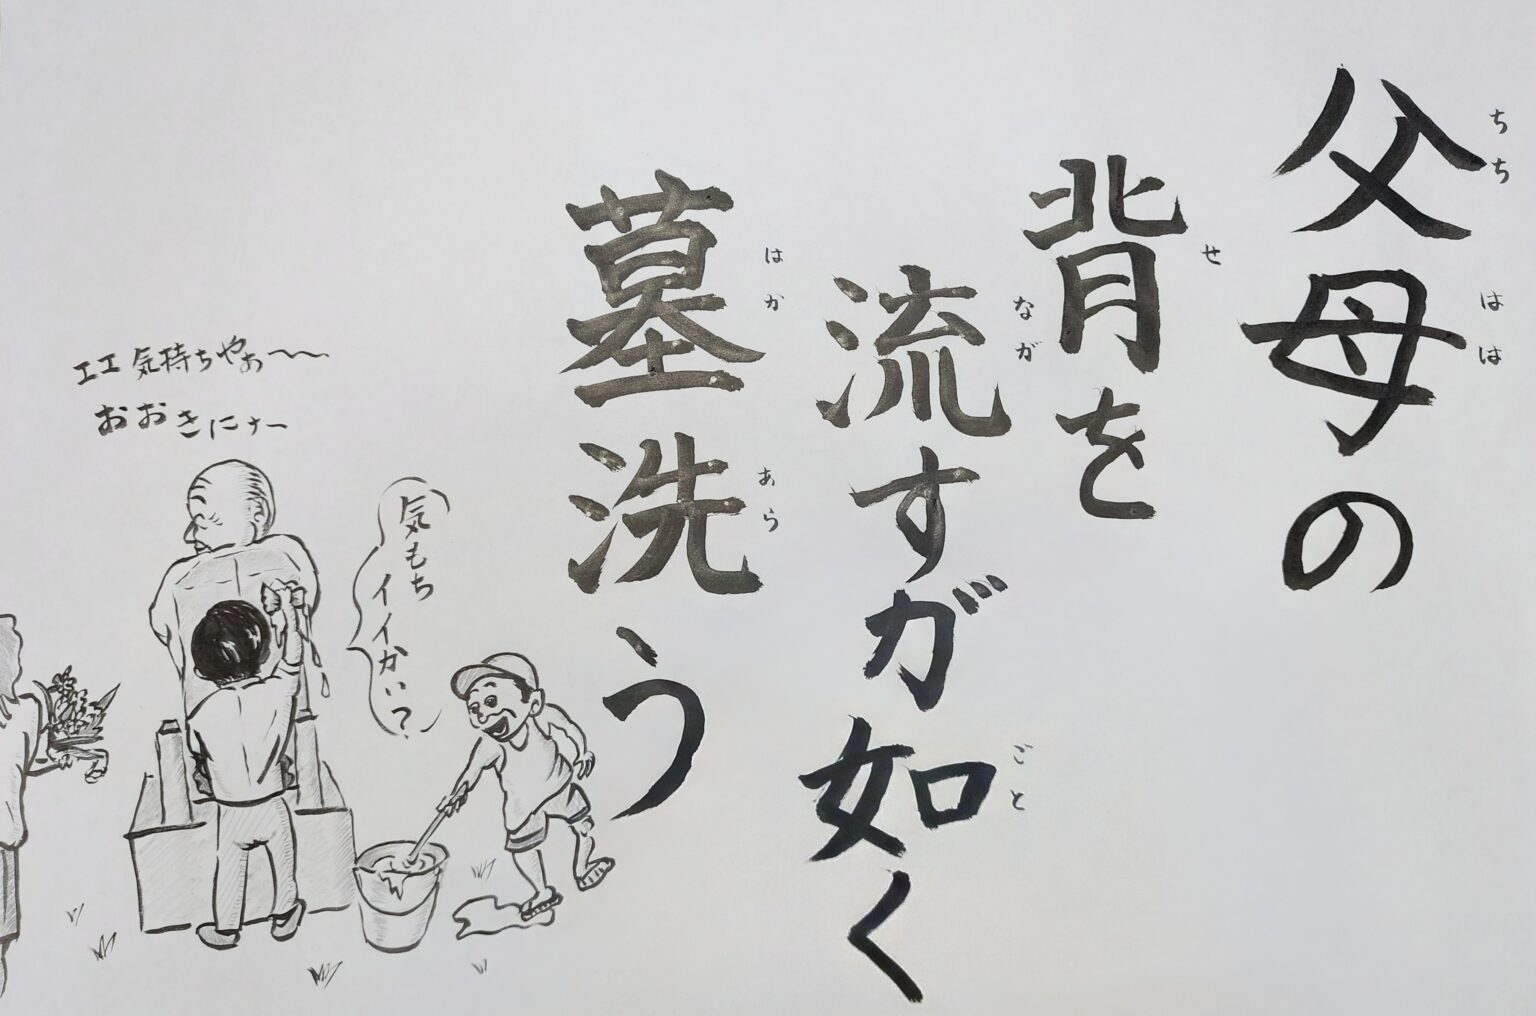 父母の
ちち
はは
背を
せ
流すが如く
なが
ごと
墓洗う
はか
あら
気もち
イイかい?
エエ気持ちやぉ〜〜
おおきにナー